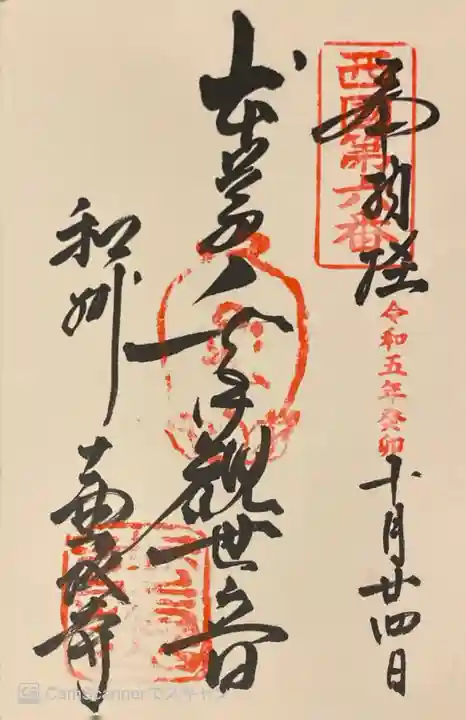 西國第六番
奉納経
令和五年癸卯十月廿四日
本尊千手觀世音
和州
壷阪寺
CamScannerでスキャン